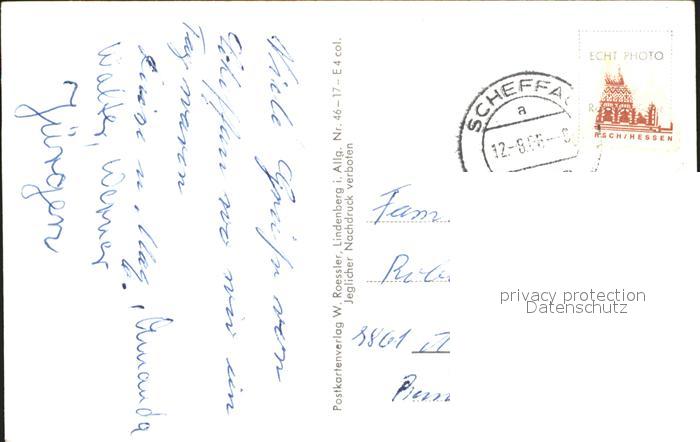 Viele Grüße von
Scheffau wo wir ein
Tag waren
Luise u. Mag.
Walter, Werner, Amanda
Jürgen
Postkartenverlag W. Roessler, Lindenberg i. Allg. Nr. 46–17–E4 col.
Jeglicher Nachdruck verboten
SCHEFFAU
a
12-8.66-
ECHT PHOTO
RSCH/HESSEN
Fam.
8861
privacy protection
Datenschutz